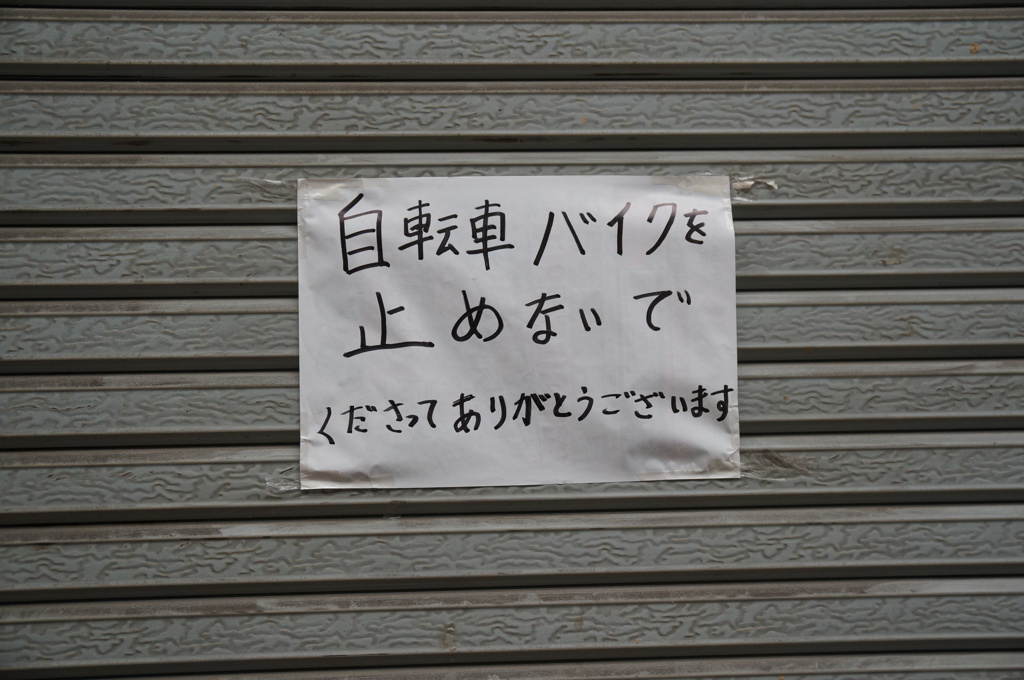 自転車バイクを
止めないで
くださってありがとうございます